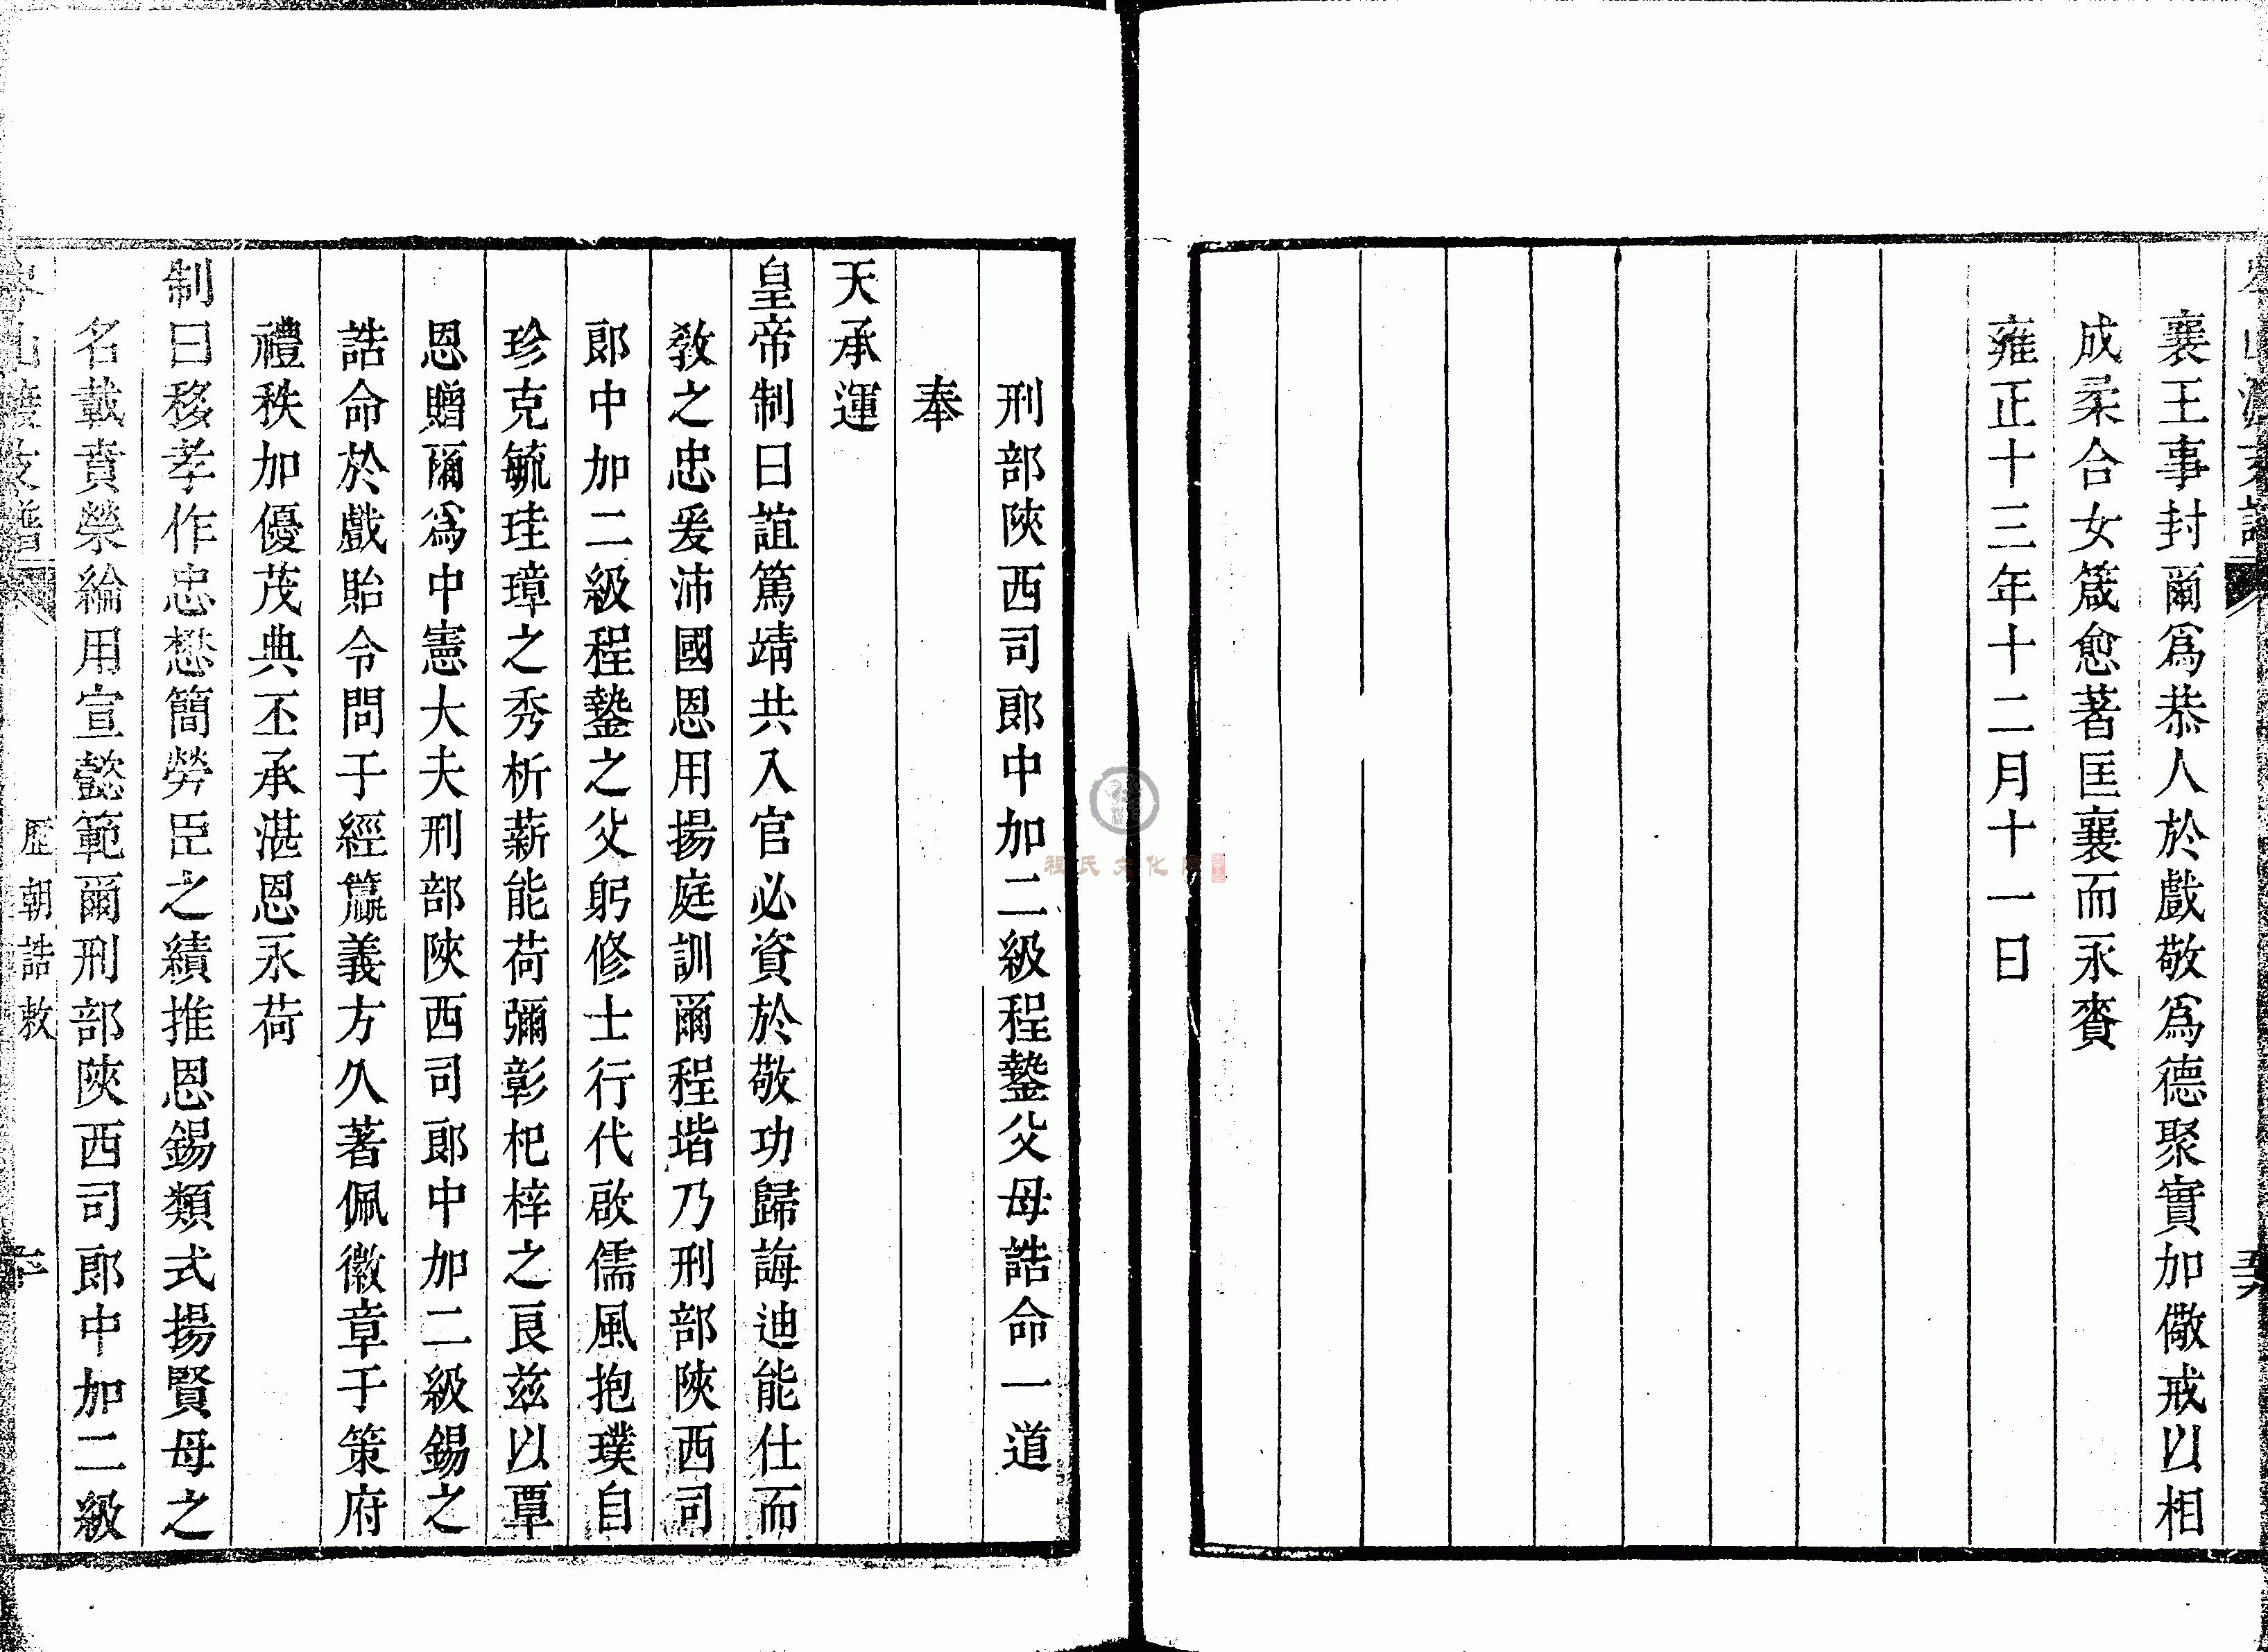 襄王事封爾爲恭人於戲敬爲德聚實加儆戒以相
成柔合女箴愈著匡襄而永賚
雍正十三年十二月十一日
刑部陝西司郎中加二級程鍫父母誥命一道
奉
天承運
皇帝制曰誼篤靖共入官必資於敬功歸誨迪能仕而
敎之忠爰沛國恩用揚庭訓爾程堦乃刑部陝西司
郎中加二級程鍫之父躬修士行代啟儒風抱璞自
珍克毓珪璋之秀析薪能荷彌彰杞梓之良兹以覃
恩贈爾爲中憲大夫刑部陝西司郎中加二級錫之
誥命於戲貽令問于經籯義方久著佩徽章于策府
禮秩加優茂典丕承湛恩永荷
制曰移孝作忠懋簡勞臣之績推恩錫類式揚賢母之
名載賁榮綸用宣懿範爾刑部陝西司郎中加二級
歷朝誥敕
程氏文化